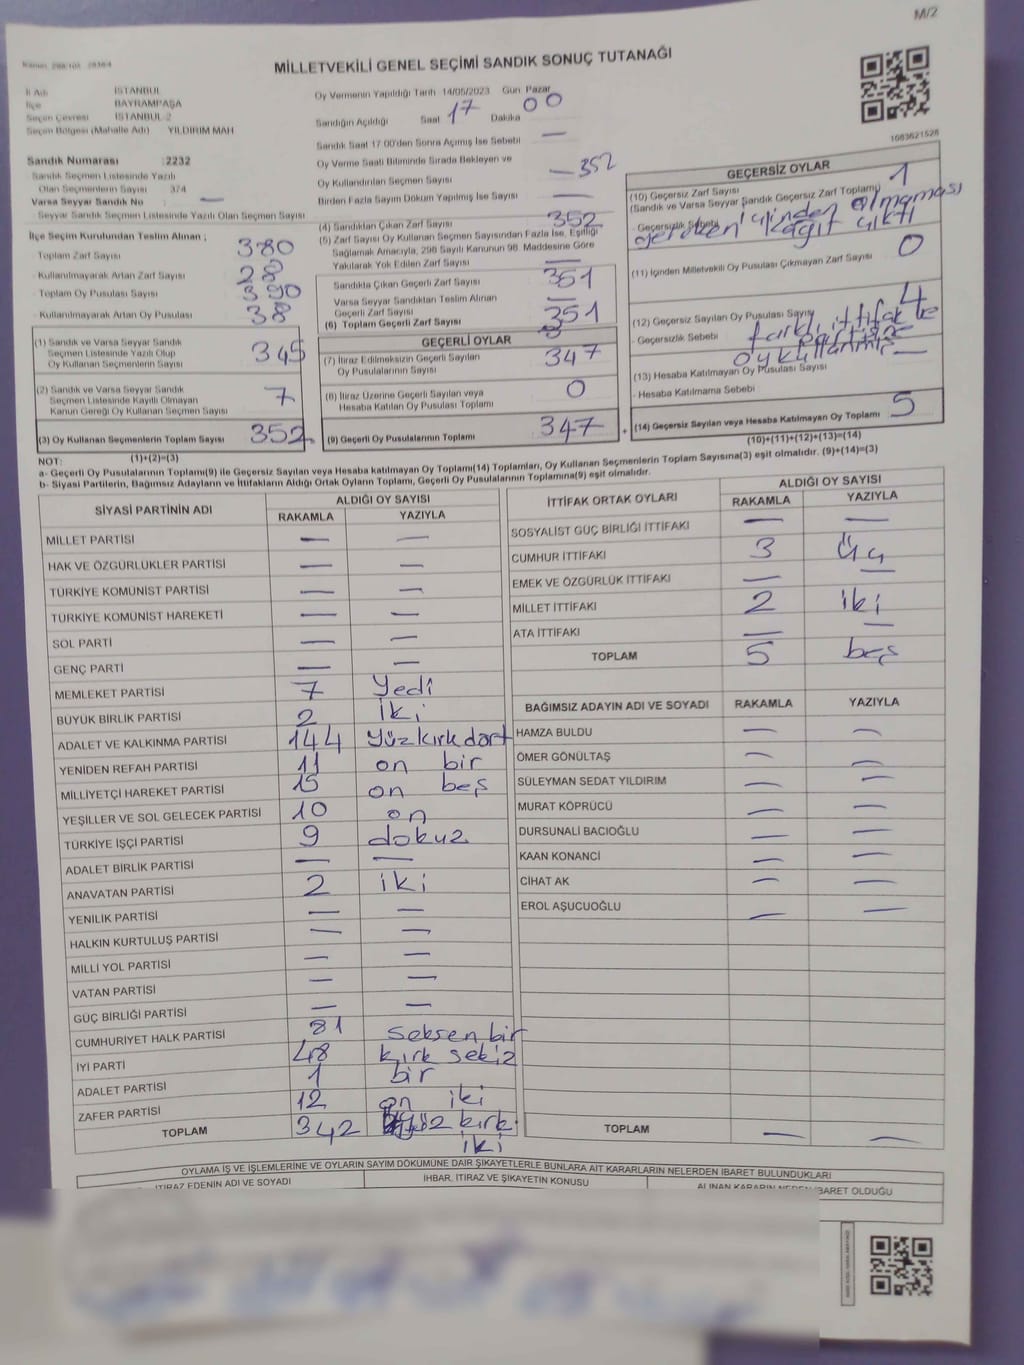 M/2
MİLLETVEKİLİ GENEL SEÇİMİ SANDIK SONUÇ TUTANAĞI
İl Adı İSTANBUL
İlçe BAYRAMPAŞA
Seçim Çevresi İSTANBUL-2
Seçim Bölgesi (Mahalle Adı) YILDIRIM MAH
Sandık Numarası :2232
Sandık Seçmen Listesinde Yazılı
Olan Seçmenlerin Sayısı 374
Varsa Seyyar Sandık No : —
Seyyar Sandık Seçmen Listesinde Yazılı Olan Seçmen Sayısı
Oy Vermenin Yapıldığı Tarih 14/05/2023 Gün Pazar
Sandığın Açıldığı Saat 17 Dakika 00
Sandık Saat 17.00'den Sonra Açılmış İse Sebebi —
Oy Verme Saati Bitiminde Sırada Bekleyen ve
Oy Kullandırılan Seçmen Sayısı — 352
Birden Fazla Sayım Döküm Yapılmış İse Sayısı —
1683621528
İlçe Seçim Kurulundan Teslim Alınan ;
Toplam Zarf Sayısı 380
- Kullanılmayarak Artan Zarf Sayısı 28
- Toplam Oy Pusulası Sayısı 390
- Kullanılmayarak Artan Oy Pusulası 38
(1) Sandık ve Varsa Seyyar Sandık
Seçmen Listesinde Yazılı Olup
Oy Kullanan Seçmenlerin Sayısı 345
(2) Sandık ve Varsa Seyyar Sandık
Seçmen Listesinde Kayıtlı Olmayan
Kanun Gereği Oy Kullanan Seçmen Sayısı 7
(3) Oy Kullanan Seçmenlerin Toplam Sayısı 352
(1)+(2)=(3)
(4) Sandıktan Çıkan Zarf Sayısı 352
(5) Zarf Sayısı Oy Kullanan Seçmen Sayısından Fazla İse, Eşitliği
Sağlamak Amacıyla, 298 Sayılı Kanunun 98. Maddesine Göre
Yakılarak Yok Edilen Zarf Sayısı —
Sandıkta Çıkan Geçerli Zarf Sayısı 351
Varsa Seyyar Sandıktan Teslim Alınan
Geçerli Zarf Sayısı —
(6) Toplam Geçerli Zarf Sayısı 351
GEÇERLİ OYLAR
(7) İtiraz Edilmeksizin Geçerli Sayılan
Oy Pusulalarının Sayısı 347
(8) İtiraz Üzerine Geçerli Sayılan veya
Hesaba Katılan Oy Pusulası Toplamı 0
(9) Geçerli Oy Pusulalarının Toplamı 347
+
GEÇERSİZ OYLAR
(10) Geçersiz Zarf Sayısı 1
(Sandık ve Varsa Seyyar Sandık Geçersiz Zarf Toplamı)
- Geçersizlik Sebebi içinden olmaması
gereken kağıt çıktı
(11) İçinden Milletvekili Oy Pusulası Çıkmayan Zarf Sayısı 0
(12) Geçersiz Sayılan Oy Pusulası Sayısı 4
- Geçersizlik Sebebi farklı ittifak ve
partisine
oy kullanmış
(13) Hesaba Katılmayan Oy Pusulası Sayısı —
- Hesaba Katılmama Sebebi
(14) Geçersiz Sayılan veya Hesaba Katılmayan Oy Toplamı 5
(10)+(11)+(12)+(13)=(14)
NOT:
a- Geçerli Oy Pusulalarının Toplamı(9) ile Geçersiz Sayılan veya Hesaba katılmayan Oy Toplamı(14) Toplamları, Oy Kullanan Seçmenlerin Toplam Sayısına(3) eşit olmalıdır. (9)+(14)=(3)
b- Siyasi Partilerin, Bağımsız Adayların ve İttifakların Aldığı Ortak Oyların Toplamı, Geçerli Oy Pusulalarının Toplamına(9) eşit olmalıdır.
SİYASİ PARTİNİN ADI ALDIĞI OY SAYISI
RAKAMLA YAZIYLA
MİLLET PARTİSİ — —
HAK VE ÖZGÜRLÜKLER PARTİSİ — —
TÜRKİYE KOMÜNİST PARTİSİ — —
TÜRKİYE KOMÜNİST HAREKETİ — —
SOL PARTİ — —
GENÇ PARTİ — —
MEMLEKET PARTİSİ 7 Yedi
BÜYÜK BİRLİK PARTİSİ 2 iki
ADALET VE KALKINMA PARTİSİ 144 Yüzkırkdört
YENİDEN REFAH PARTİSİ 11 on bir
MİLLİYETÇİ HAREKET PARTİSİ 15 on beş
YEŞİLLER VE SOL GELECEK PARTİSİ 10 on
TÜRKİYE İŞÇİ PARTİSİ 9 dokuz
ADALET BİRLİK PARTİSİ — —
ANAVATAN PARTİSİ 2 iki
YENİLİK PARTİSİ — —
HALKIN KURTULUŞ PARTİSİ — —
MİLLİ YOL PARTİSİ — —
VATAN PARTİSİ — —
GÜÇ BİRLİĞİ PARTİSİ — —
CUMHURİYET HALK PARTİSİ 81 seksen bir
İYİ PARTİ 48 kırk sekiz
ADALET PARTİSİ 1 bir
ZAFER PARTİSİ 12 on iki
TOPLAM 342 üçyüz kırk
iki
İTTİFAK ORTAK OYLARI ALDIĞI OY SAYISI
RAKAMLA YAZIYLA
SOSYALİST GÜÇ BİRLİĞİ İTTİFAKI — —
CUMHUR İTTİFAKI 3 üç
EMEK VE ÖZGÜRLÜK İTTİFAKI — —
MİLLET İTTİFAKI 2 iki
ATA İTTİFAKI — —
TOPLAM 5 beş
BAĞIMSIZ ADAYIN ADI VE SOYADI RAKAMLA YAZIYLA
HAMZA BULDU — —
ÖMER GÖNÜLTAŞ — —
SÜLEYMAN SEDAT YILDIRIM — —
MURAT KÖPRÜCÜ — —
DURSUNALİ BACIOĞLU — —
KAAN KONANCİ — —
CİHAT AK — —
EROL AŞUCUOĞLU — —
TOPLAM — —
OYLAMA İŞ VE İŞLEMLERİNE VE OYLARIN SAYIM DÖKÜMÜNE DAİR ŞİKAYETLERLE BUNLARA AİT KARARLARIN NELERDEN İBARET BULUNDUKLARI
İTİRAZ EDENİN ADI VE SOYADI İHBAR, İTİRAZ VE ŞİKAYETİN KONUSU ALINAN KARARIN NEDEN İBARET OLDUĞU